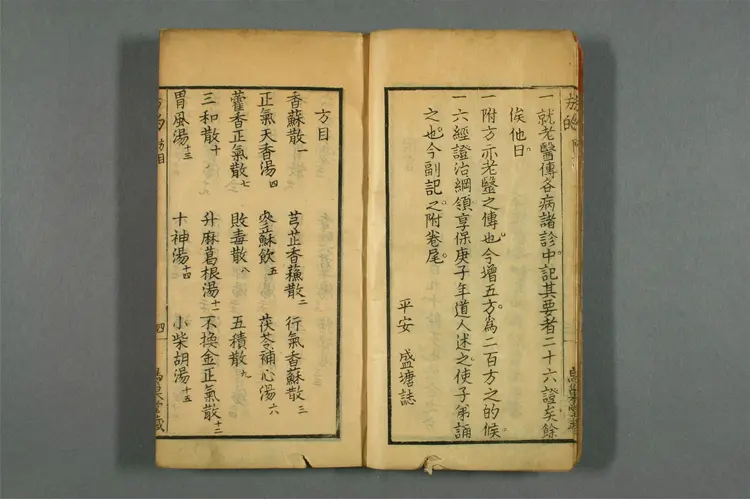 一就老醫傳各病諸診中記其要者二十六證矣餘
俟他日
一附方亦老醫之傳也今增五方為二百方之的候
一六經證治綱領享保庚子年道人述之使子弟誦
之也今副記之附卷尾
平安 盛塘誌
方目
香蘇散一 芎芷香蘓散二 行氣香蘇散三
正氣天香湯四 參蘇飲五 茯苓補心湯六
藿香正氣散七 敗毒散八 五積散九
三和散十 升麻葛根湯十一 不換金正氣散十二
胃風湯十三 十神湯十四 小柴胡湯十五
方的 方目 四